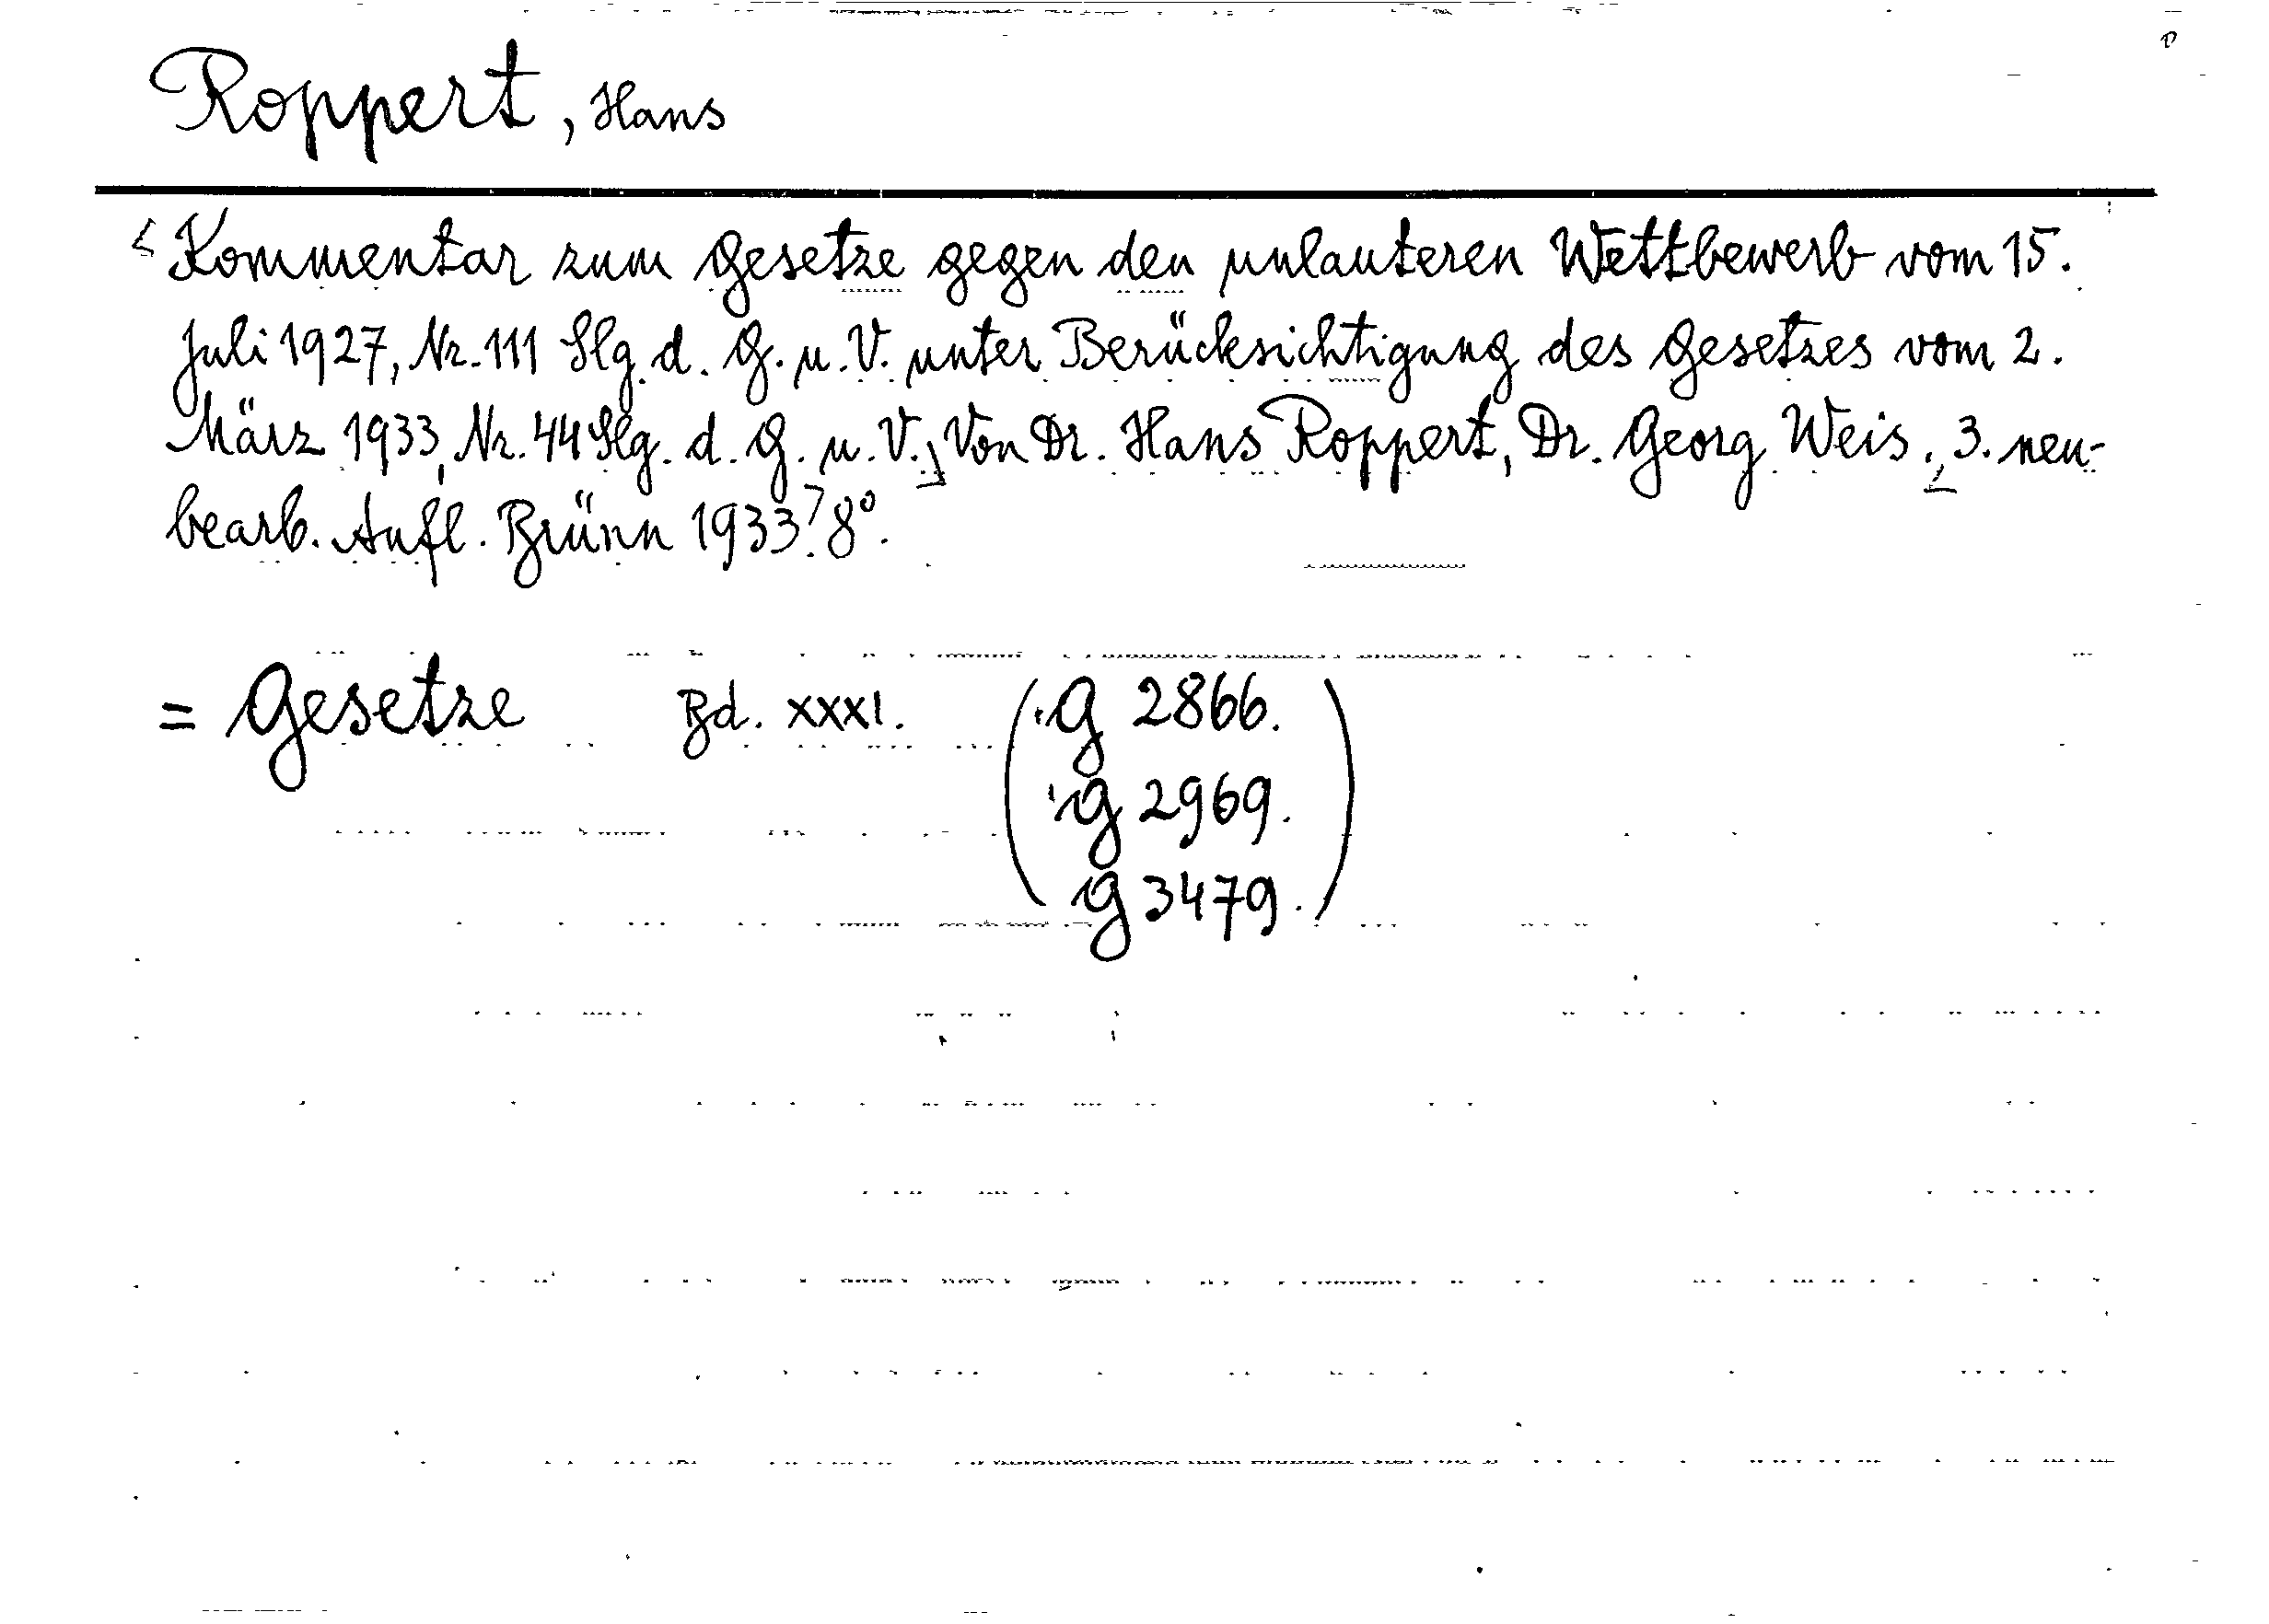 Roppert, Hans
Kommentar zum Gesetze gegen den unlauteren Wettbewerb vom 15.
Juli 1927, Nr. 111 Slg. d. G. u. V. unter Berücksichtigung des Gesetzes vom 2.
März 1933, Nr. 44 Slg. d. G. u. V., Von Dr. Hans Roppert, Dr. Georg Weis., 3. neu-
bearb. Aufl. Brünn 1933. 8°.
= Gesetze Bd. XXXI. (G 2866.
G 2969.
G 3479.)